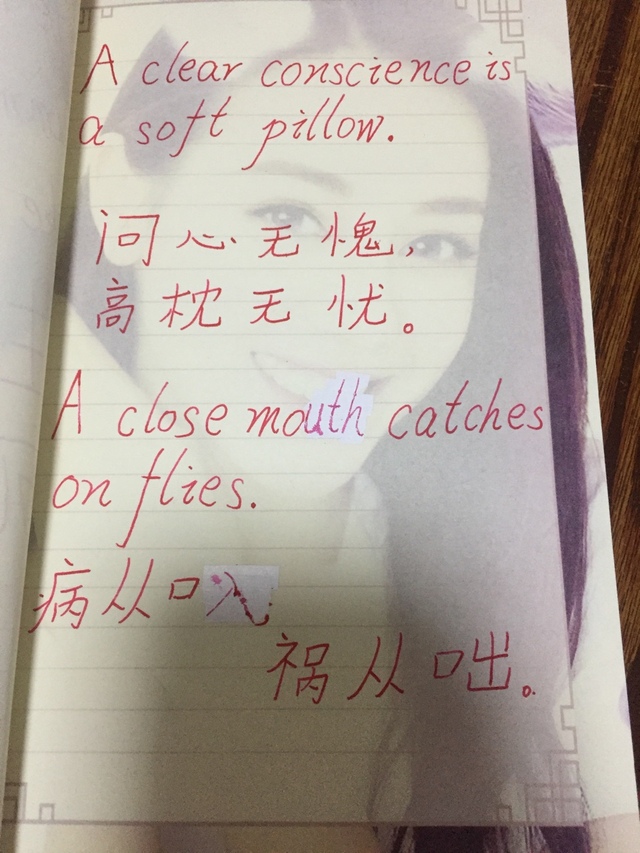 A clear conscience is
a soft pillow.
问心无愧，
高枕无忧。
A close mouth catches
on flies.
病从口入
祸从口出。